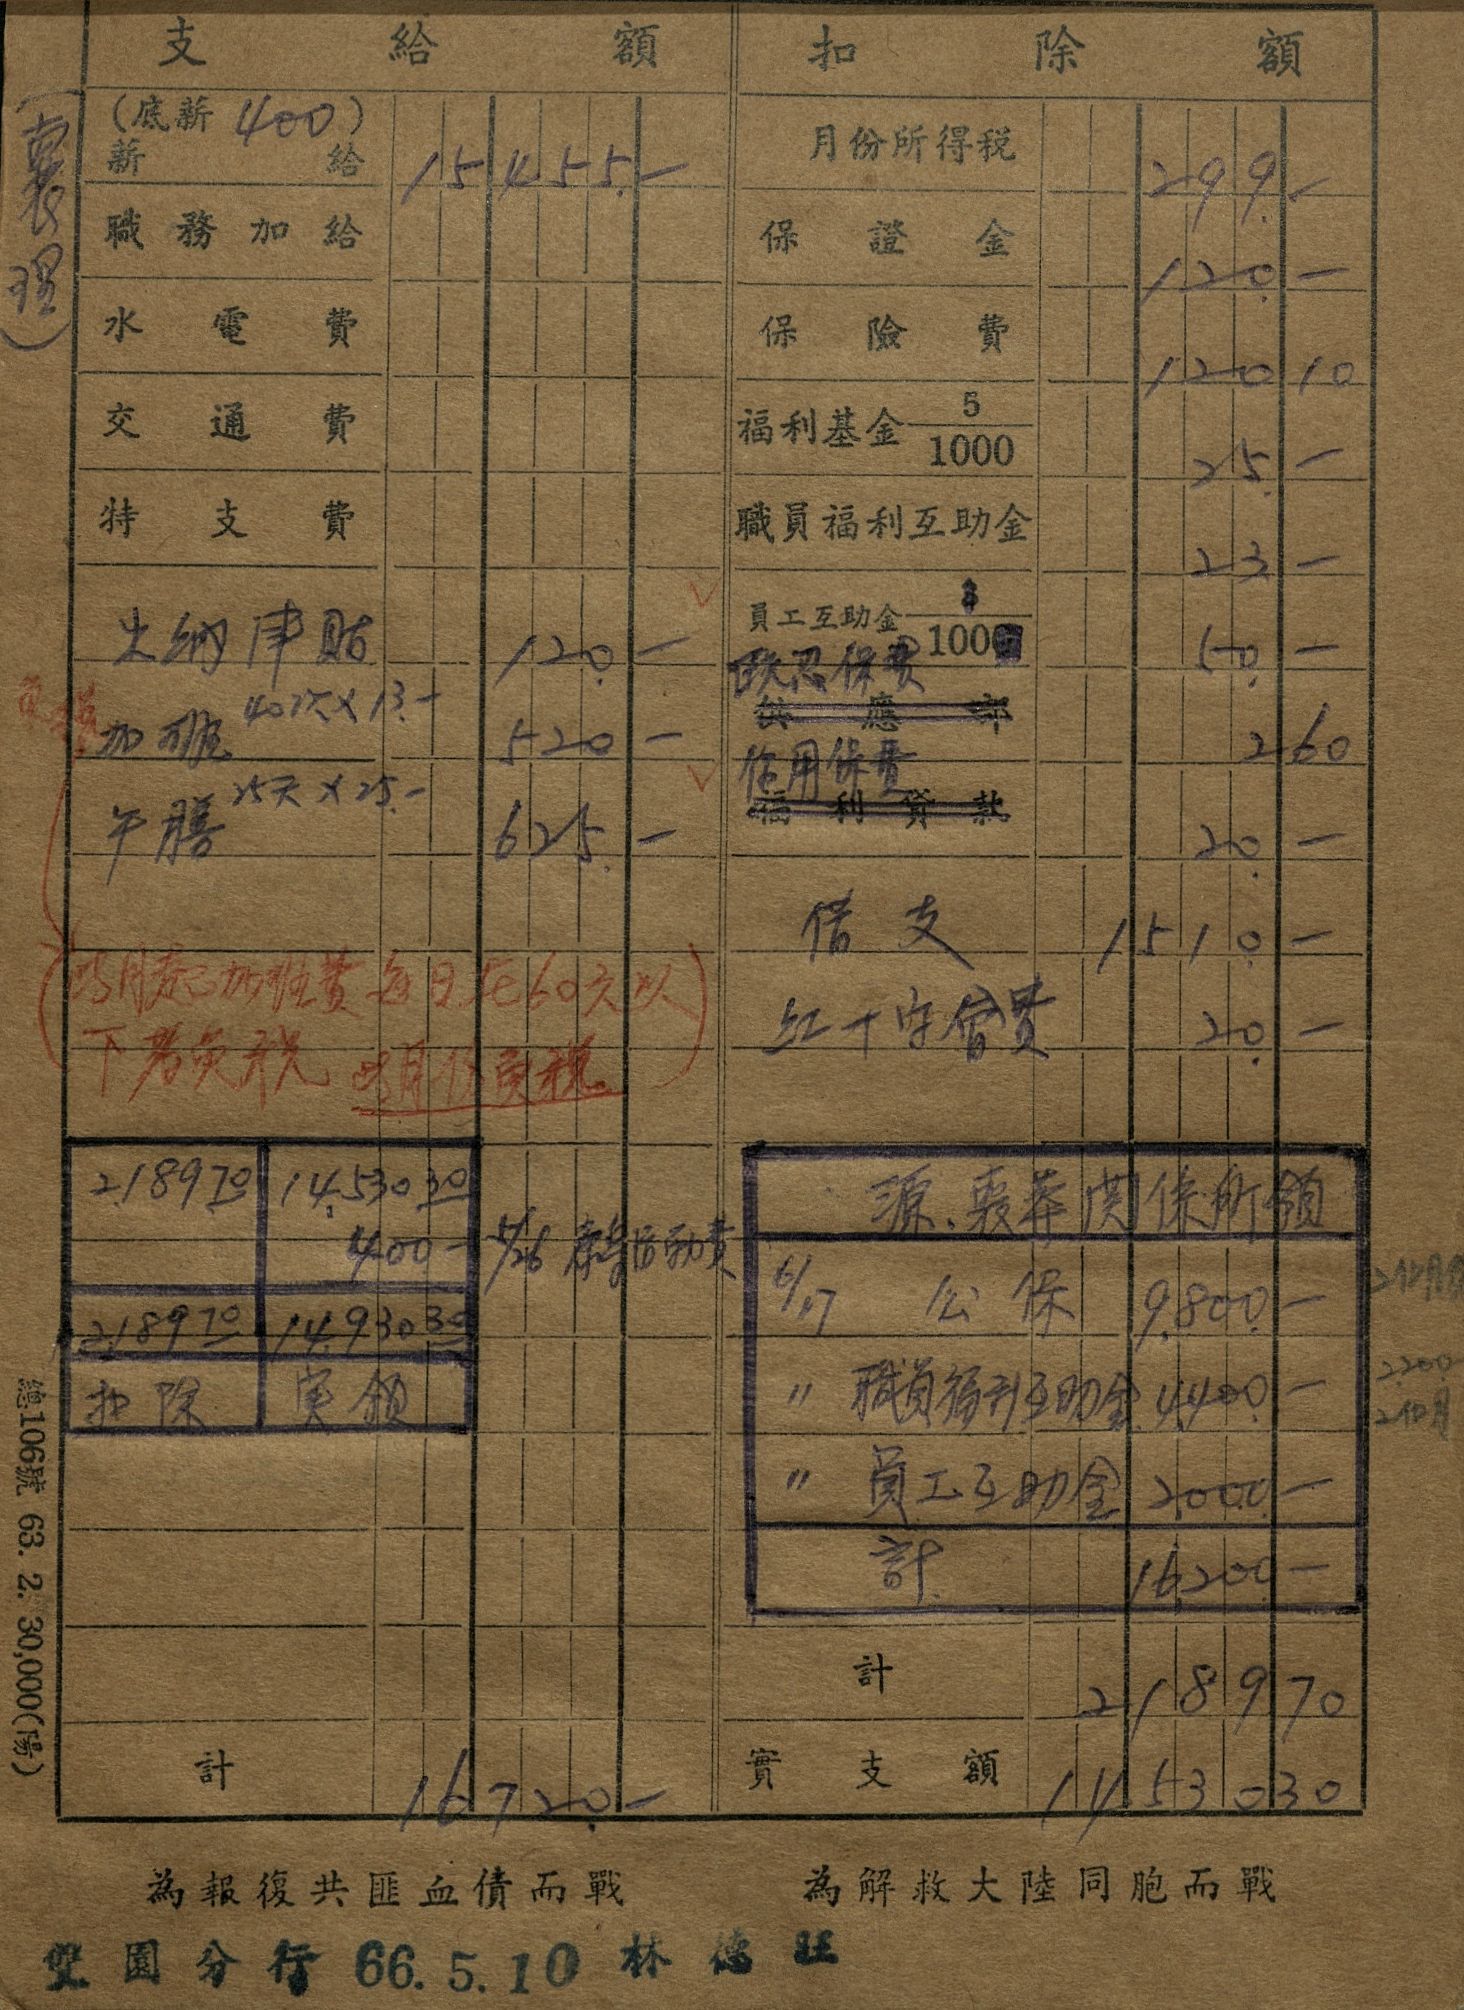 支給額
扣除額
(襄理)
(底薪 400)
薪給 15455.—
職務加給
水電費
交通費
特支費
出納津貼 120.—
加班 40次×13.— 520.—
午膳 25天×25.— 625.—
免稅
(5月起加班費每日在60元以
下者免稅 此月份免稅)
218970 14,53030
400— 5/26 康樂活動費
218970 14,93030
扣除 実領
計 16720.—
月份所得稅 299.—
保證金 120.—
保險費 120.10
福利基金 5/1000 25.—
職員福利互助金 23.—
員工互助金 3/100 50.—
疾患保費
供應部 260
信用保費
福利貸款 20.—
借支 1510.—
紅十字會費 20.—
源、裵華関係所領
6/17 公保 9,800.— 2個月份
〃 職員福利互助金 4,400.— 2200
2個月
〃 員工互助金 2,000.—
計 16,200—
計 218970
實支額 1453030
總106號 63. 2. 30,000(陽)
為報復共匪血債而戰
為解救大陸同胞而戰
雙園分行 66.5.10 林德旺